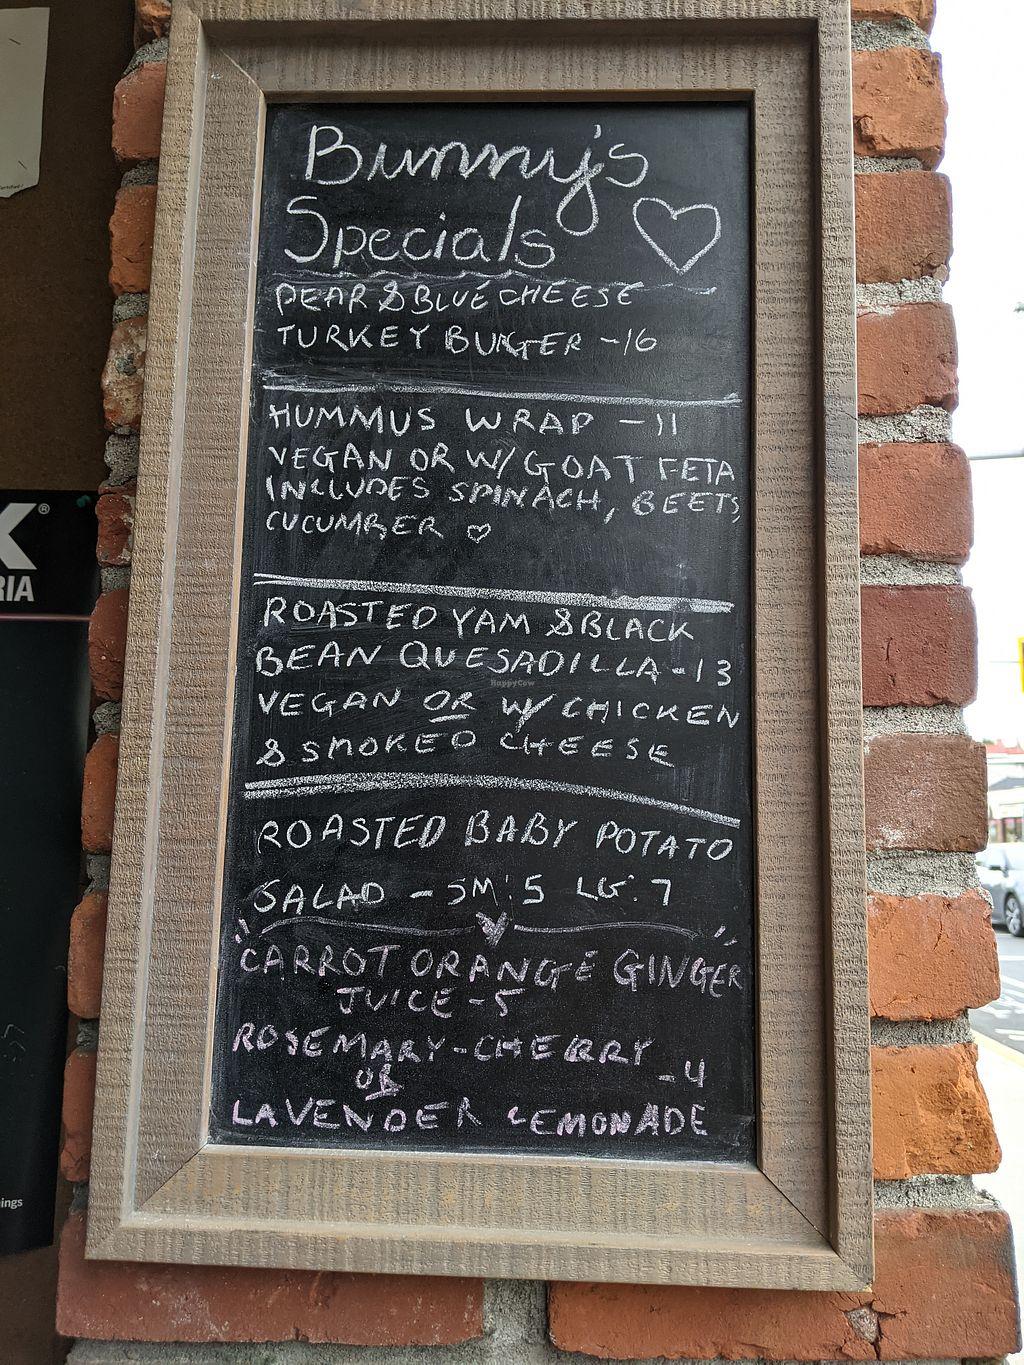 Bunny's
Specials
PEAR & BLUE CHEESE
TURKEY BURGER -16
HUMMUS WRAP - 11
VEGAN OR W/ GOAT FETA
INCLUDES SPINACH, BEETS,
CUCUMBER
ROASTED YAM & BLACK
BEAN QUESADILLA - 13
VEGAN OR W/ CHICKEN
& SMOKED CHEESE
ROASTED BABY POTATO
SALAD - SM: 5 LG: 7
CARROT ORANGE GINGER
JUICE - 5
ROSEMARY - CHERRY
OR
-4
LAVENDER LEMONADE
K®
RIA
ings
HappyCow